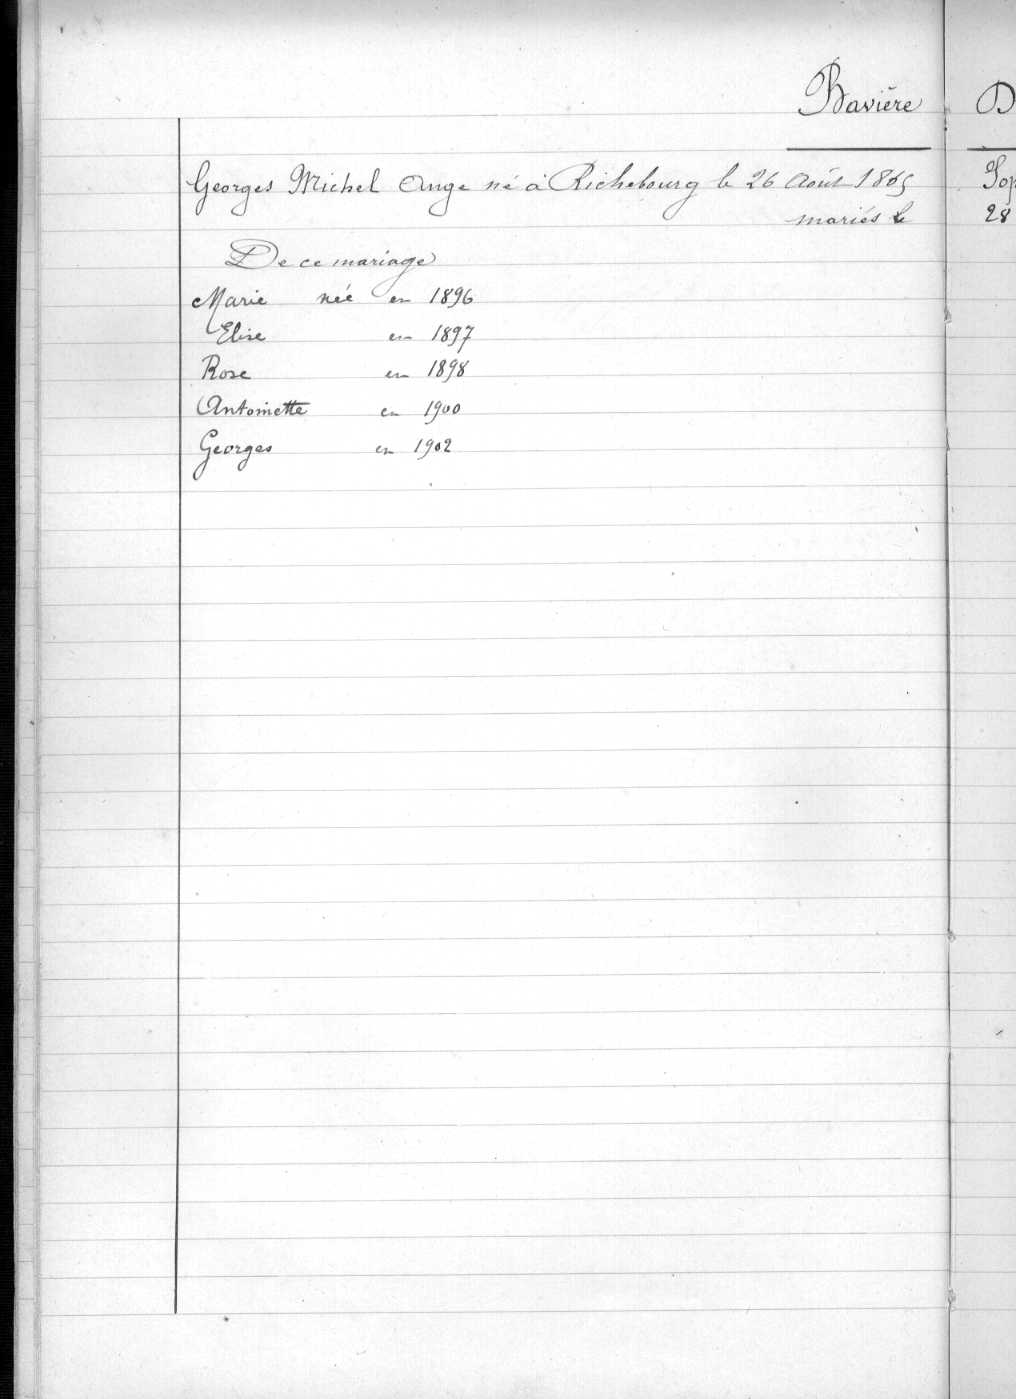 Bavière D
Georges Michel Ange né à Richebourg le 26 Août 1865 Sop
mariés le 28
De ce mariage
Marie née en 1896
Elise en 1897
Rose en 1898
Antoinette en 1900
Georges en 1902